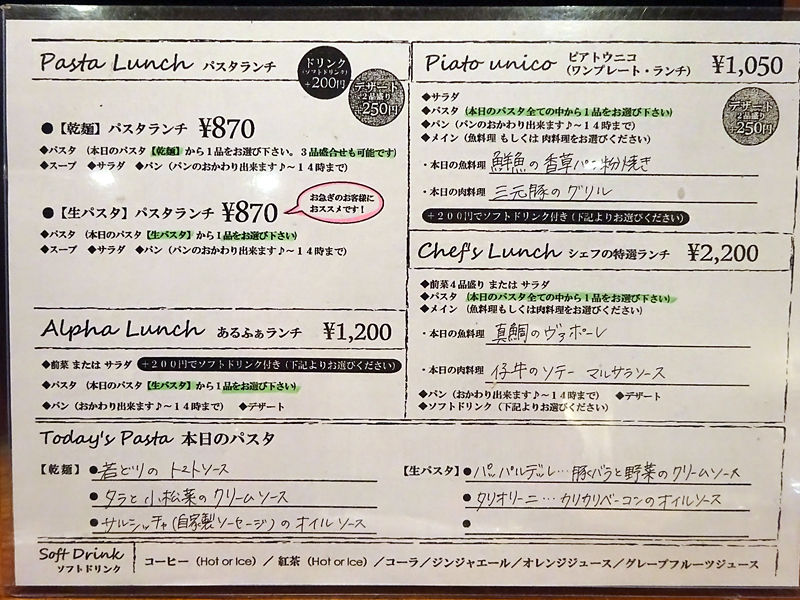 Pasta Lunch パスタランチ
ドリンク
(ソフトドリンク)
+200円
デザート
2品盛り
+250円
●【乾麺】パスタランチ ¥870
◆パスタ (本日のパスタ【乾麺】から1品をお選び下さい。3品盛合せも可能です)
◆スープ ◆サラダ ◆パン (パンのおかわり出来ます♪～14時まで)
●【生パスタ】パスタランチ ¥870
お急ぎのお客様に
おススメです!
◆パスタ (本日のパスタ【生パスタ】から1品をお選び下さい)
◆スープ ◆サラダ ◆パン (パンのおかわり出来ます♪～14時まで)
Alpha Lunch あるふぁランチ ¥1,200
◆前菜 または サラダ +200円でソフトドリンク付き(下記よりお選びください)
◆パスタ (本日のパスタ【生パスタ】から1品をお選び下さい)
◆パン (おかわり出来ます♪～14時まで) ◆デザート
Piato unico ピアトウニコ
(ワンプレート・ランチ) ¥1,050
デザート
2品盛り
+250円
◆サラダ
◆パスタ (本日のパスタ全ての中から1品をお選び下さい)
◆パン (パンのおかわり出来ます♪～14時まで)
◆メイン (魚料理 もしくは 肉料理をお選びください)
・本日の魚料理 鮮魚の香草パン粉焼き
・本日の肉料理 三元豚のグリル
+200円でソフトドリンク付き(下記よりお選びください)
Chef's Lunch シェフの特選ランチ ¥2,200
◆前菜4品盛り または サラダ
◆パスタ (本日のパスタ全ての中から1品をお選び下さい)
◆メイン (魚料理もしくは肉料理をお選びください)
・本日の魚料理 真鯛のヴァポーレ
・本日の肉料理 仔牛のソテー マルサラソース
◆パン (おかわり出来ます♪～14時まで) ◆デザート
◆ソフトドリンク (下記よりお選びください)
Today's Pasta 本日のパスタ
【乾麺】●若どりの トマトソース
●タラと小松菜のクリームソース
●サルシッチャ(自家製ソーセージ)のオイルソース
【生パスタ】●パッパルデッレ…豚バラと野菜のクリームソース
●タリオリーニ…カリカリベーコンのオイルソース
●
Soft Drink
ソフトドリンク
コーヒー (Hot or Ice) / 紅茶 (Hot or Ice) / コーラ/ジンジャエール/オレンジジュース/グレープフルーツジュース